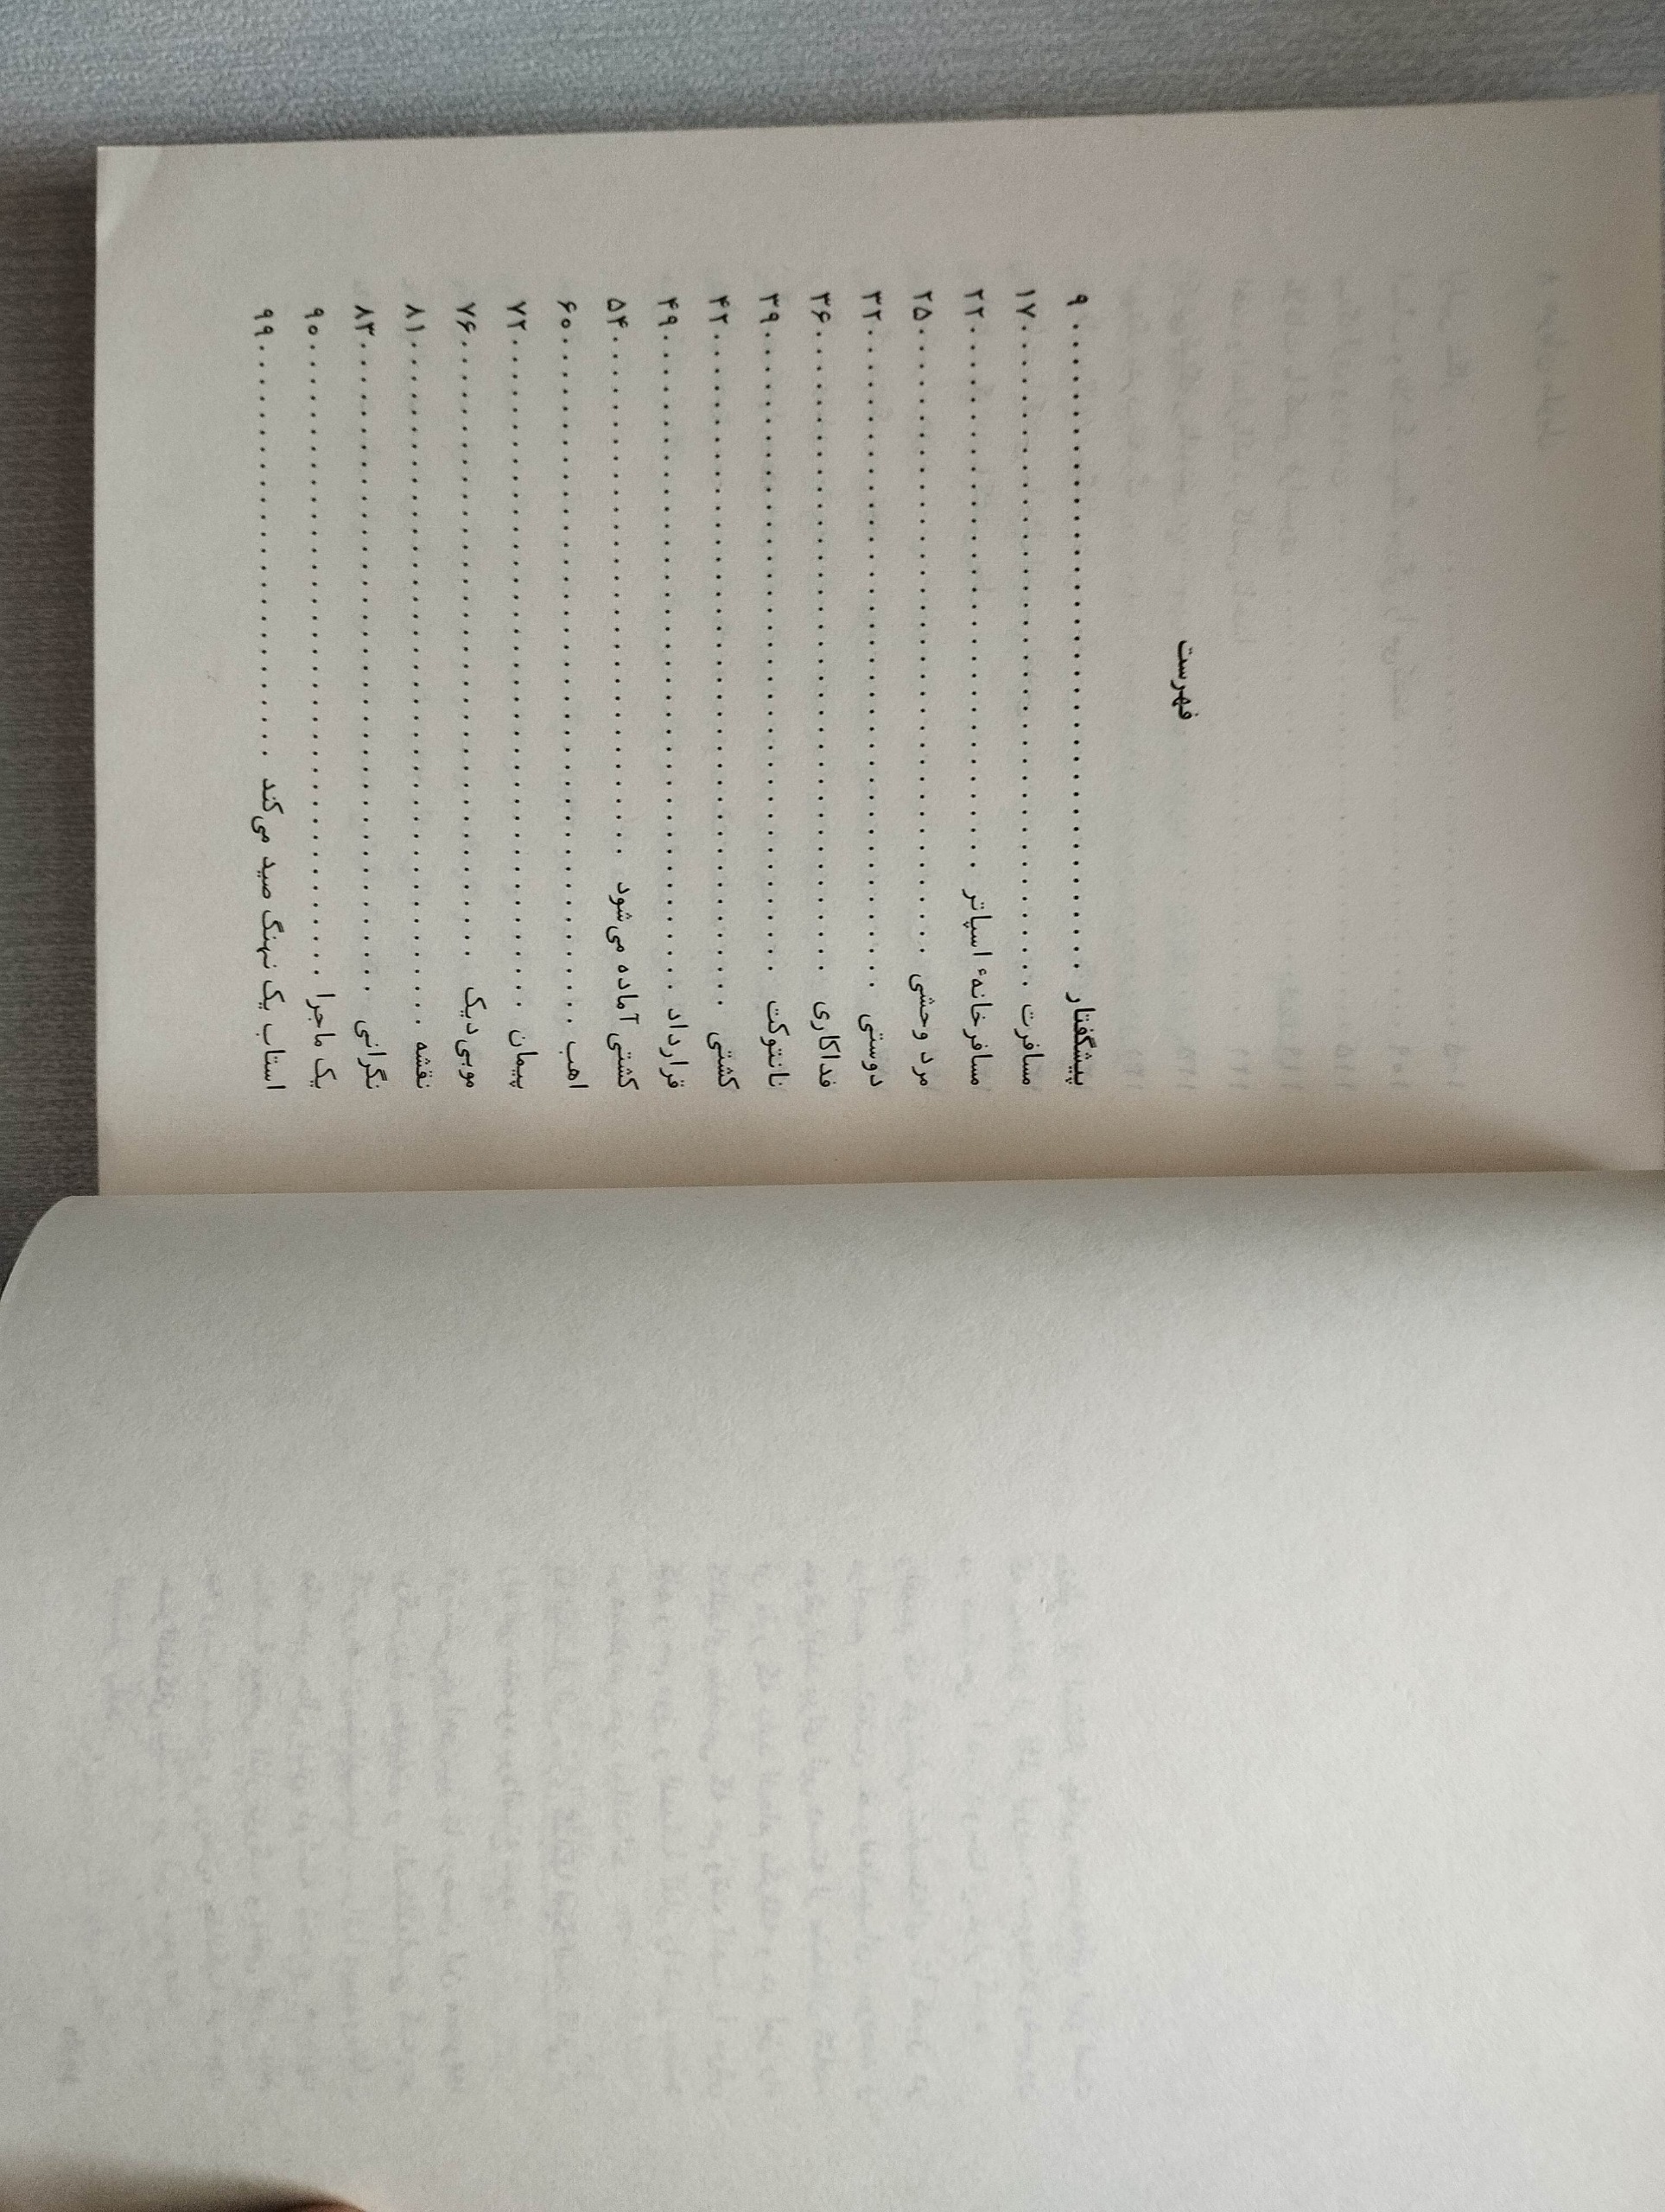 فهرست
پیشگفتار ۹
مسافرت ۱۷
مسافرخانهٔ اسپاتر ۲۲
مرد وحشی ۲۵
دوستی ۳۲
فداکاری ۳۶
نانتوکت ۳۹
کشتی ۴۲
قرارداد ۴۹
کشتی آماده می‌شود ۵۴
اهب ۶۰
پیمان ۷۲
موبی‌دیک ۷۶
نقشه ۸۱
نگرانی ۸۳
یک ماجرا ۹۰
استاب یک نهنگ صید می‌کند ۹۹